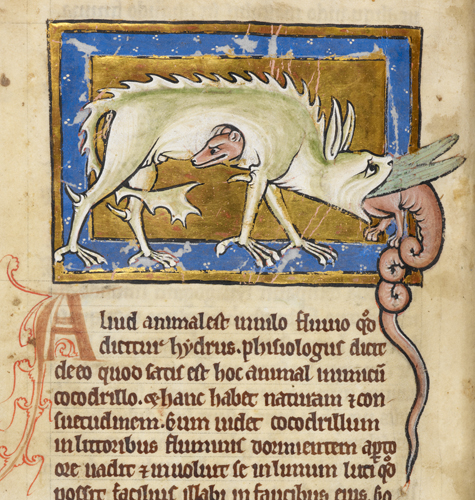 Aliud animal est in nilo fluuio qđ
dicitur hydrus. phisiologus dicit
de eo quod satis est hoc animal inimicū
cocodrillo. ⁊ hanc habet naturam ⁊ con
suetudinem. Cum uidet cocodrillum
in littoribus fluminis dormientem apto
ore uadit ⁊ inuoluit se in limum luti qͦ
possit facilius illabi in faucibus eius.